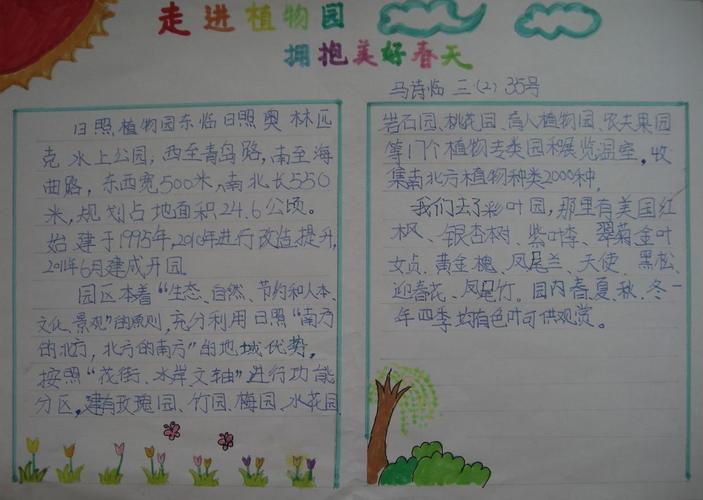 走进植物园
拥抱美好春天
马诗临 三(2) 35号
日照植物园东临日照奥林匹
克水上公园,西至青岛路,南至海
曲路,东西宽500米,南北长550
米,规划占地面积24.6公顷。
始建于1995年,2010年进行改造提升,
2011年6月建成开园.
园区本着“生态、自然、节约和人本、
文化、景观”的原则,充分利用日照“南方
的北方,北方的南方”的地域优势,
按照“花街、水岸、文轴”进行功能
分区,建有玫瑰园、竹园、梅园、水花园、
岩石园、桃花园、盲人植物园、农夫果园
等17个植物专类园和展览温室,收
集南北方植物种类2000种,
我们去了彩叶园,那里有美国红
枫、银杏树、紫叶李、翠菊金叶
女贞、黄金槐、凤尾兰、天使、黑松、
迎春花、凤尾竹。园内春、夏、秋、冬一
年四季均有色叶可供观赏。